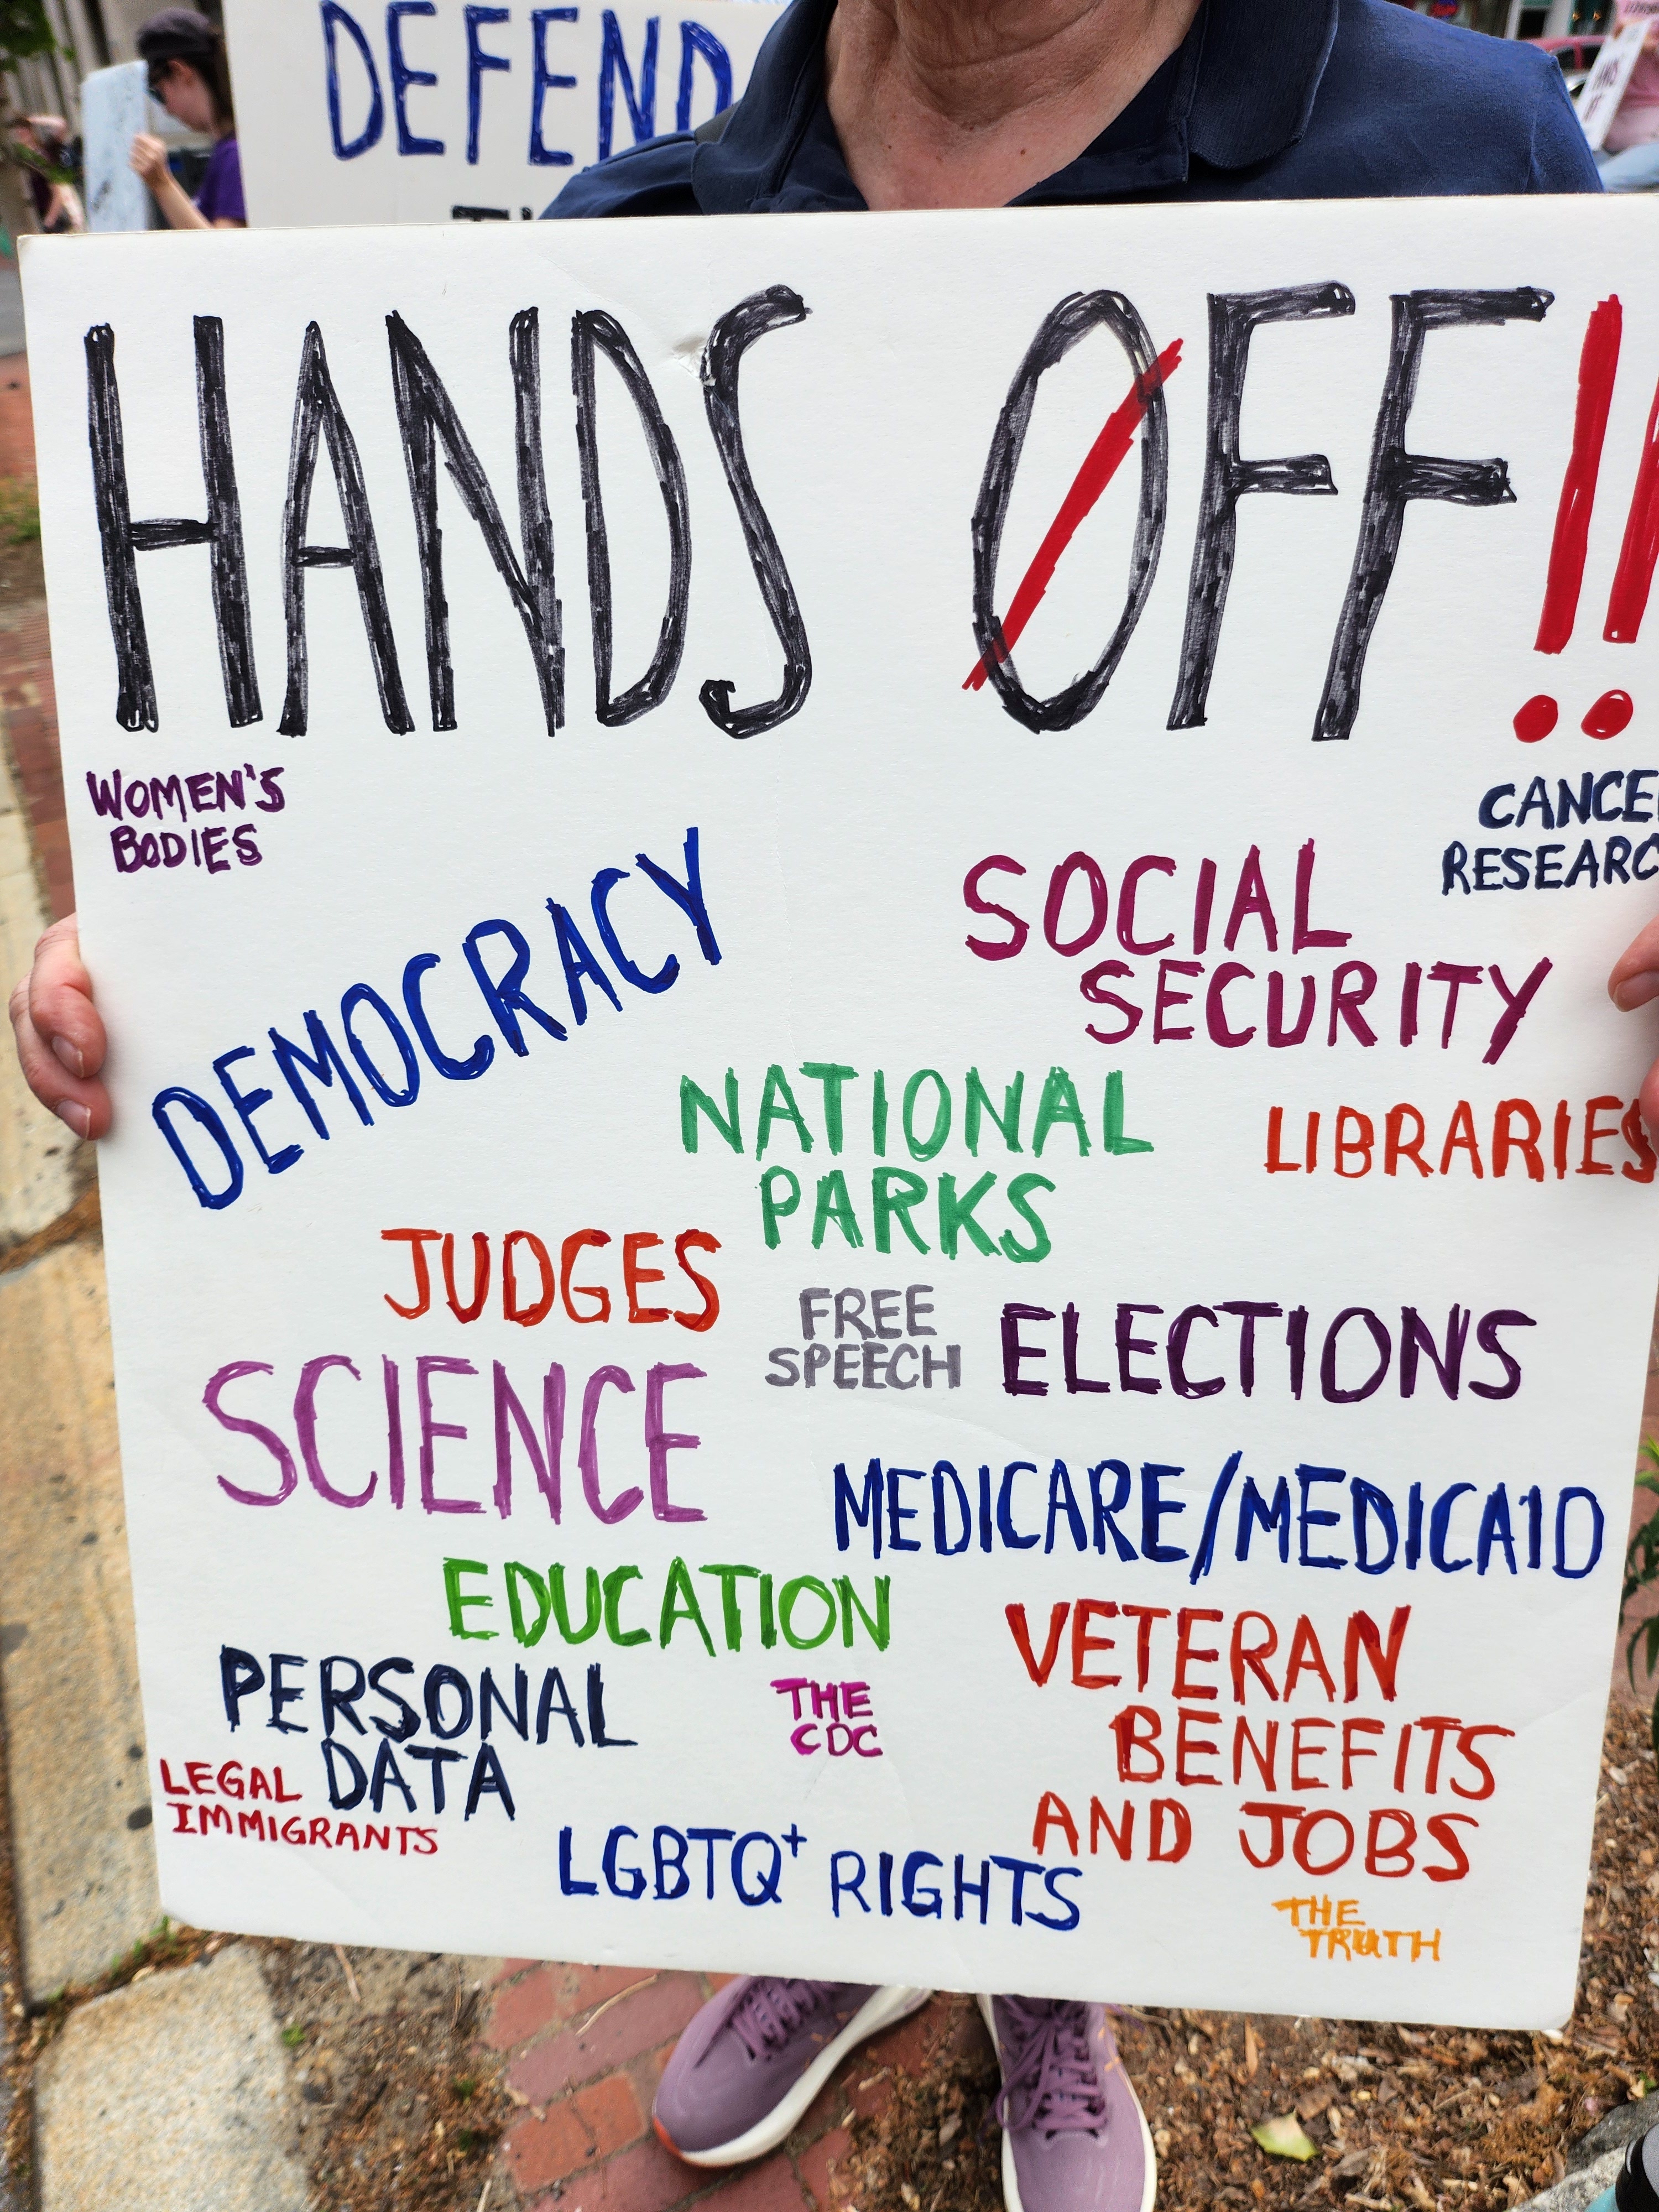 DEFEND
HANDS OFF!!
WOMEN'S
BODIES
CANCE
RESEARC
DEMOCRACY
SOCIAL
SECURITY
NATIONAL
PARKS
LIBRARIES
JUDGES
FREE
SPEECH
ELECTIONS
SCIENCE
MEDICARE/MEDICAID
EDUCATION
VETERAN
BENEFITS
AND JOBS
PERSONAL
DATA
THE
CDC
LEGAL
IMMIGRANTS
LGBTQ+ RIGHTS
THE
TRUTH